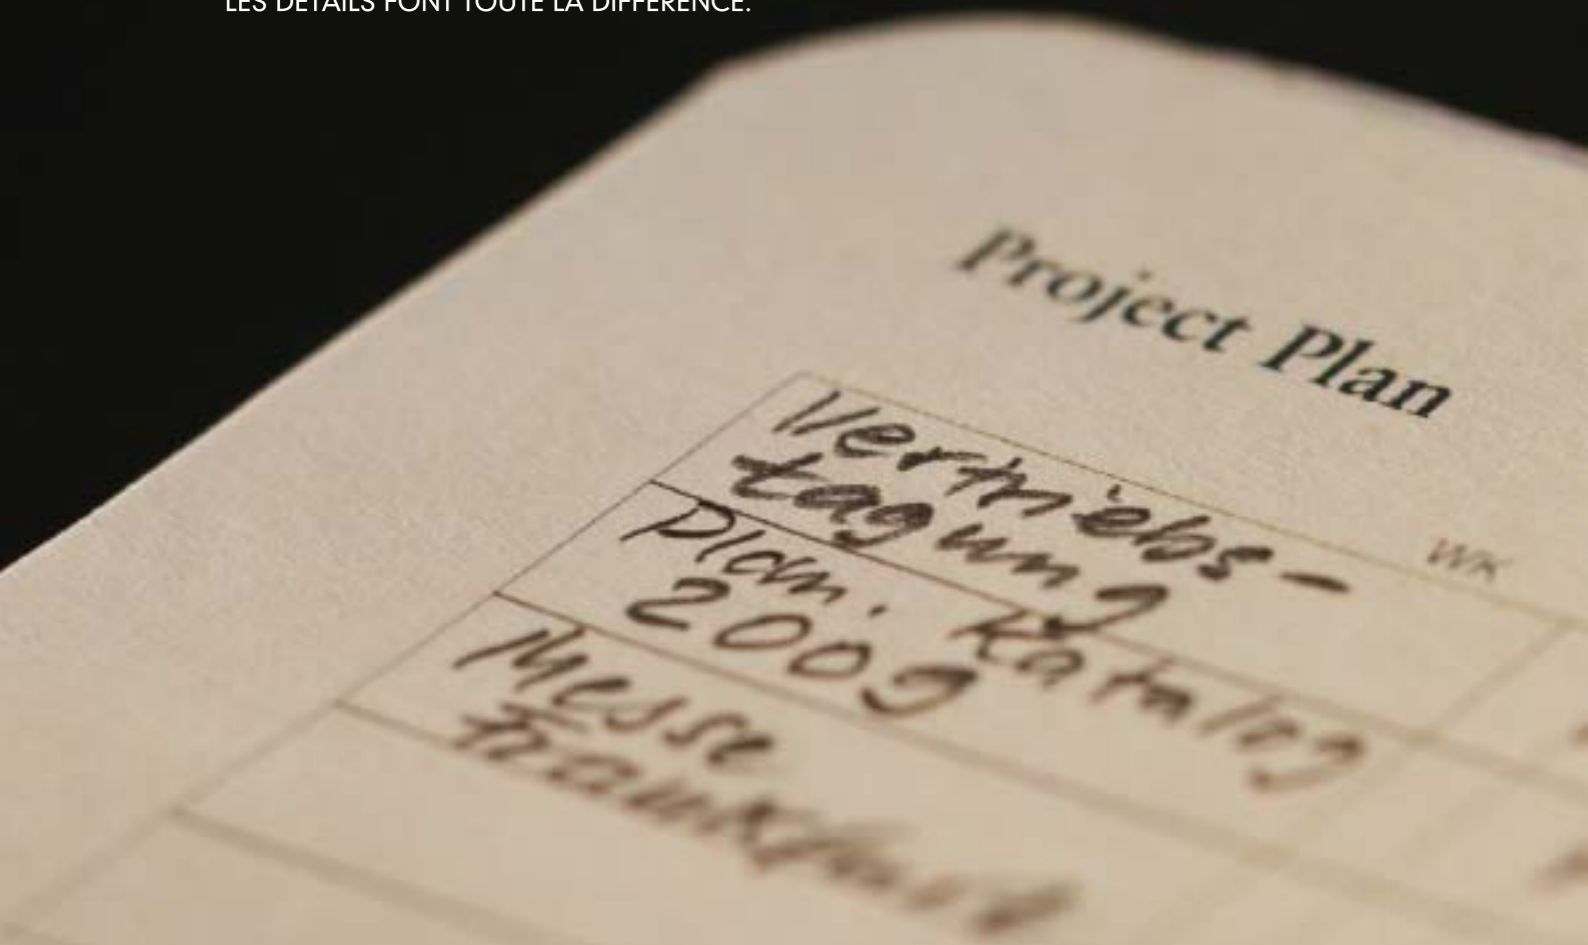 LES DÉTAILS FONT TOUTE LA DIFFÉRENCE.
Project Plan
WK
Vertriebs-
tagung
Plan. Katalog
2009
Messe
Frankfurt